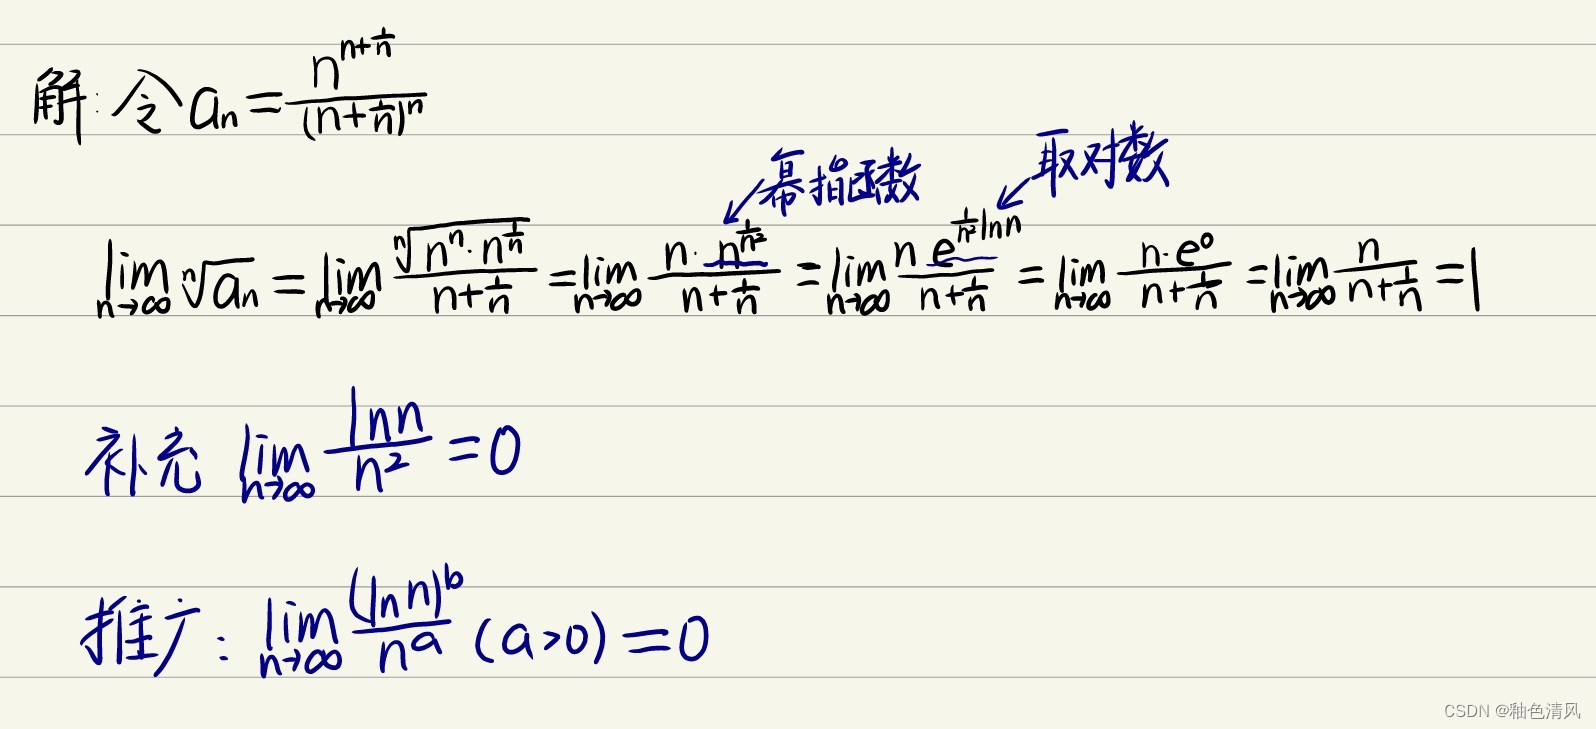 解: 令 aₙ = n^(n+1/n) / (n+1/n)ⁿ
幂指函数 取对数
lim_(n→∞) ⁿ√aₙ = lim_(n→∞) ⁿ√(nⁿ·n^(1/n)) / (n+1/n) = lim_(n→∞) n·n^(1/n²) / (n+1/n) = lim_(n→∞) n e^((1/n²)lnn) / (n+1/n) = lim_(n→∞) n·e⁰ / (n+1/n) = lim_(n→∞) n / (n+1/n) = 1
补充 lim_(n→∞) lnn / n² = 0
推广: lim_(n→∞) (lnn)^b / n^a (a>0) = 0
CSDN @釉色清风